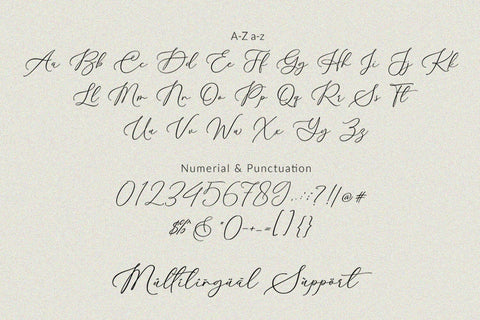 A-Z a-z
Aa Bb Cc Dd Ee Ff Gg Hh Ii Jj Kk
Ll Mm Nn Oo Pp Qq Rr Ss Tt
Uu Vv Ww Xx Yy Zz
Numerial & Punctuation
0123456789..:;?!/|@#
$%^&*()-+_=[]{}
Mùltilingüäl Sùppört